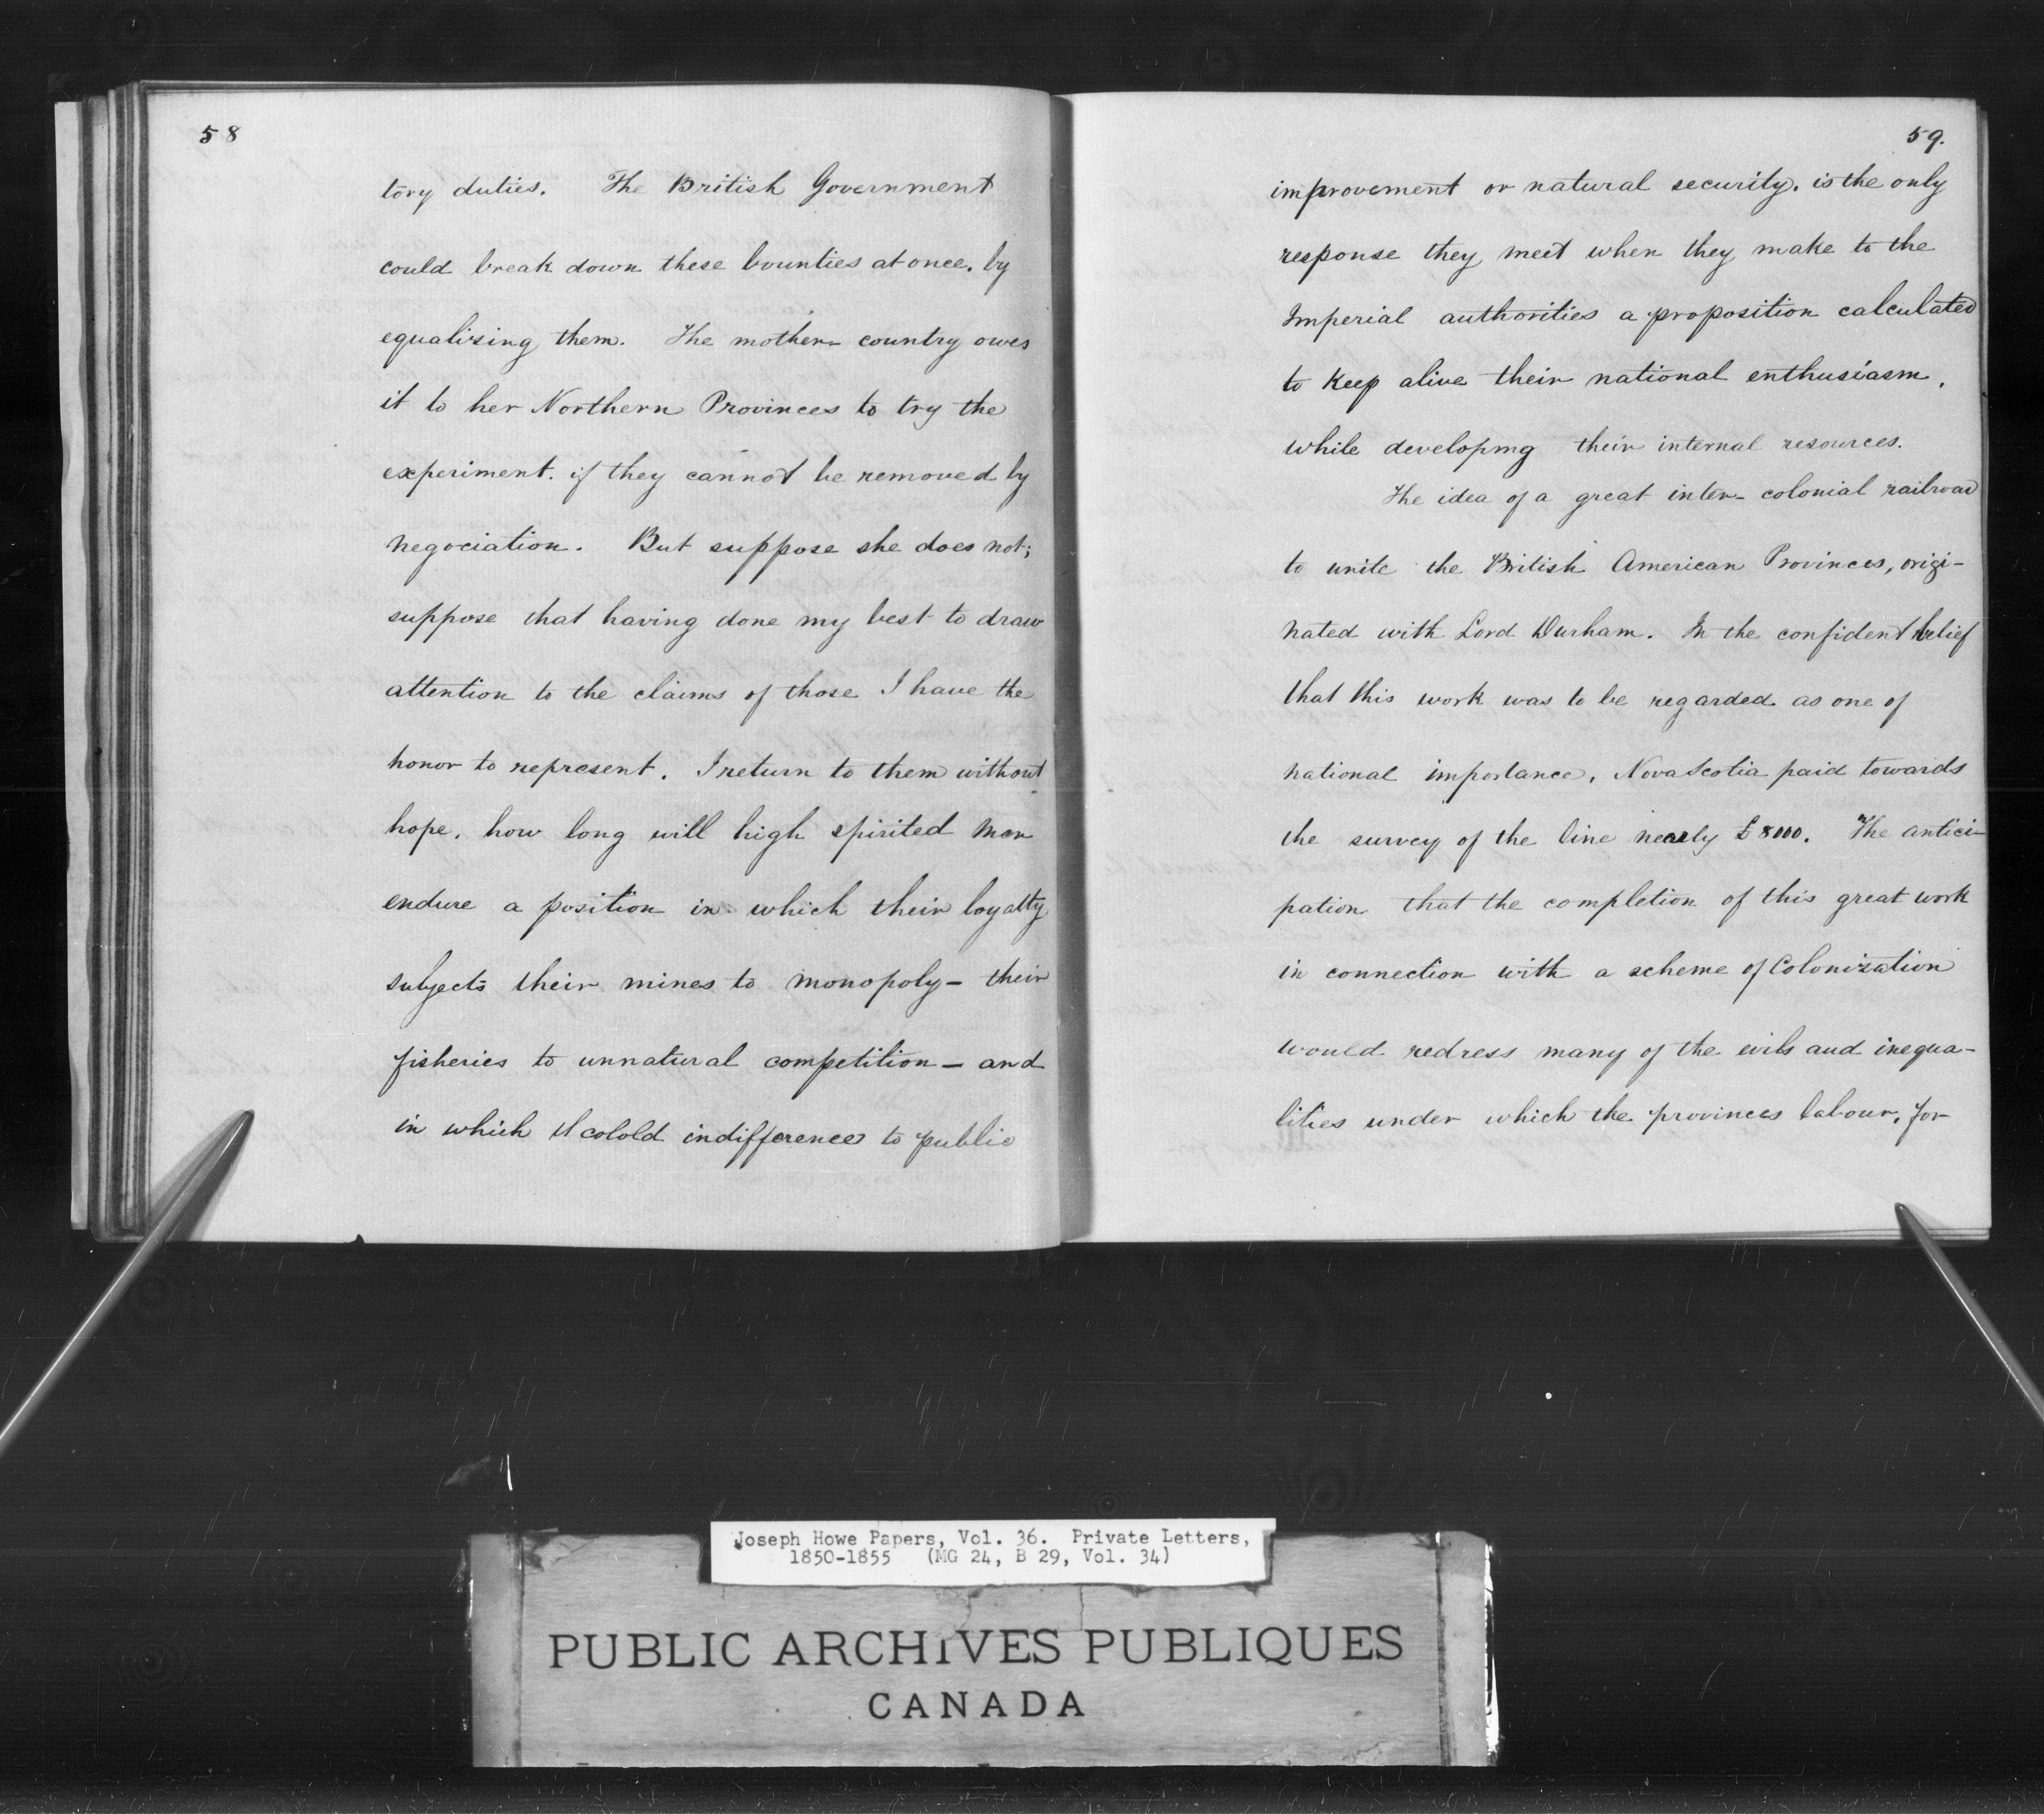 58
tory duties. The British Government
could break down these bounties at once, by
equalizing them. The mother-country owes
it to her Northern Provinces to try the
experiment. if they cannot be removed by
negociation. But suppose she does not;
suppose that having done my best to draw
attention to the claims of those I have the
honor to represent. I return to them without
hope, how long will high spirited men
endure a position in which their loyalty
subjects their mines to monopoly - their
fisheries to unnatural competition - and
in which colold indifference to public
59.
improvement or natural security. is the only
response they meet when they make to the
Imperial authorities a proposition calculated
to keep alive their national enthusiasm,
while developing their internal resources.
The idea of a great inter-colonial railroad
to unite the British American Provinces, origi-
nated with Lord Durham. In the confident belief
that this work was to be regarded as one of
national importance, Nova Scotia paid towards
the survey of the line nearly £8000. The antici-
pation that the completion of this great work
in connection with a scheme of Colonization
would redress many of the evils and inequa-
lities under which the provinces labour, for
Joseph Howe Papers, Vol. 36. Private Letters,
1850-1855 (MG 24, B 29, Vol. 34)
PUBLIC ARCHIVES PUBLIQUES
CANADA